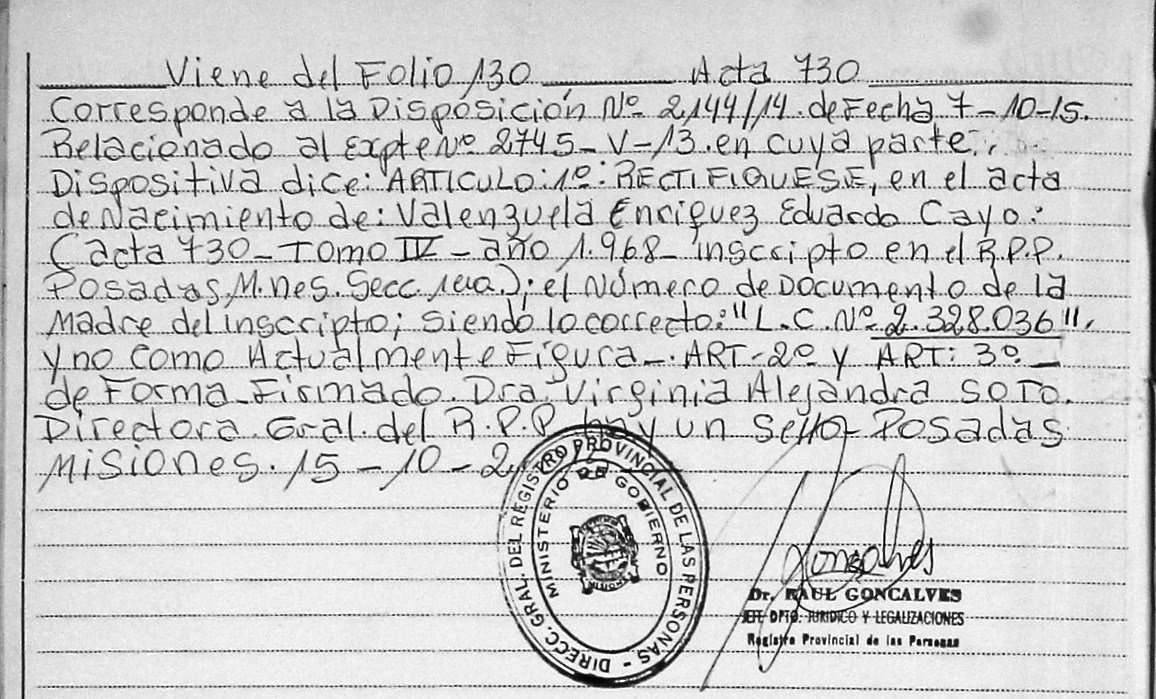 Viene del Folio 130 Acta 730
Corresponde a la Disposición Nº 2144/14. de Fecha 7-10-15.
Relacionado al Expte Nº 2745-V-13. en cuya parte.
Dispositiva dice: ARTICULO: 1º: RECTIFIQUESE, en el acta
de Nacimiento de: Valenzuela Enriquez Eduardo Cayo:
Cacta 730- Tomo IV - año 1.968- inscripto en el R.P.P.
Posadas, M.nes. Secc. 1era.); el Número de Documento de la
Madre del inscripto; siendo lo correcto: "L.C. Nº 2.328.036".
y no como Actualmente Figura-. ART-2º y ART: 3º-
de Forma-Firmado. Dra. Virginia Alejandra SOTO.
Directora. Gral. del R.P.P. hay un Sello-Posadas
Misiones. 15-10-2
DIRECC. GRAL. DEL REGISTRO PROVINCIAL DE LAS PERSONAS -
MINISTERIO DE GOBIERNO
Gonsalves
Dr. RAUL GONCALVES
JEFE DPTO. JURIDICO Y LEGALIZACIONES
Registro Provincial de las Personas